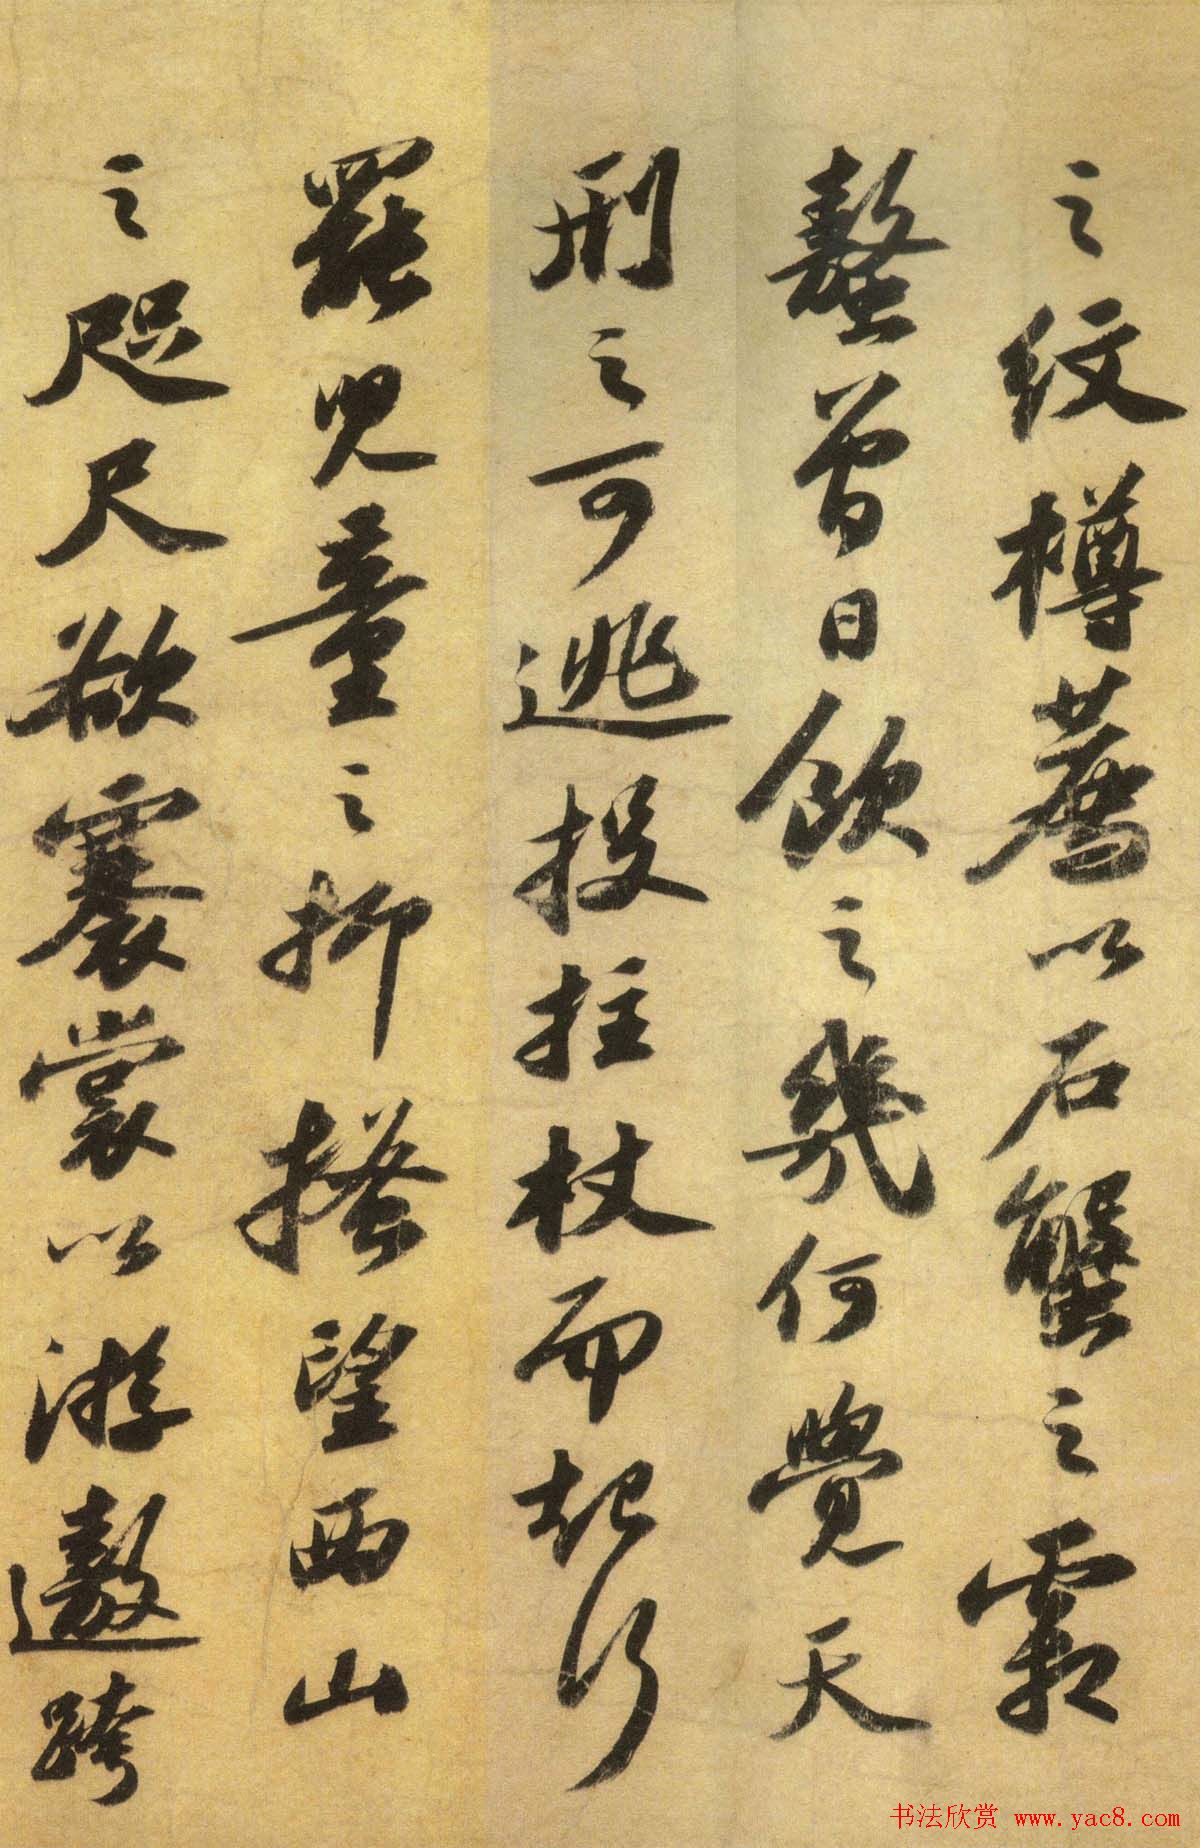 之紋樽薦以石蟹之霜
螯曾日飲之幾何覺天
刑之可逃投拄杖而起行
罷兒童之抑搔望西山
之咫尺欲褰裳以游遨跨
书法欣赏 www.yac8.com